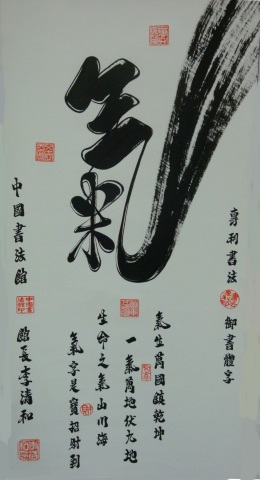 氣
專利書法
御書體字
氣生萬國鎮乾坤
一氣萬地伏九地
生命之氣山川海
氣字是寶招財到
中國書法館
館長李清和